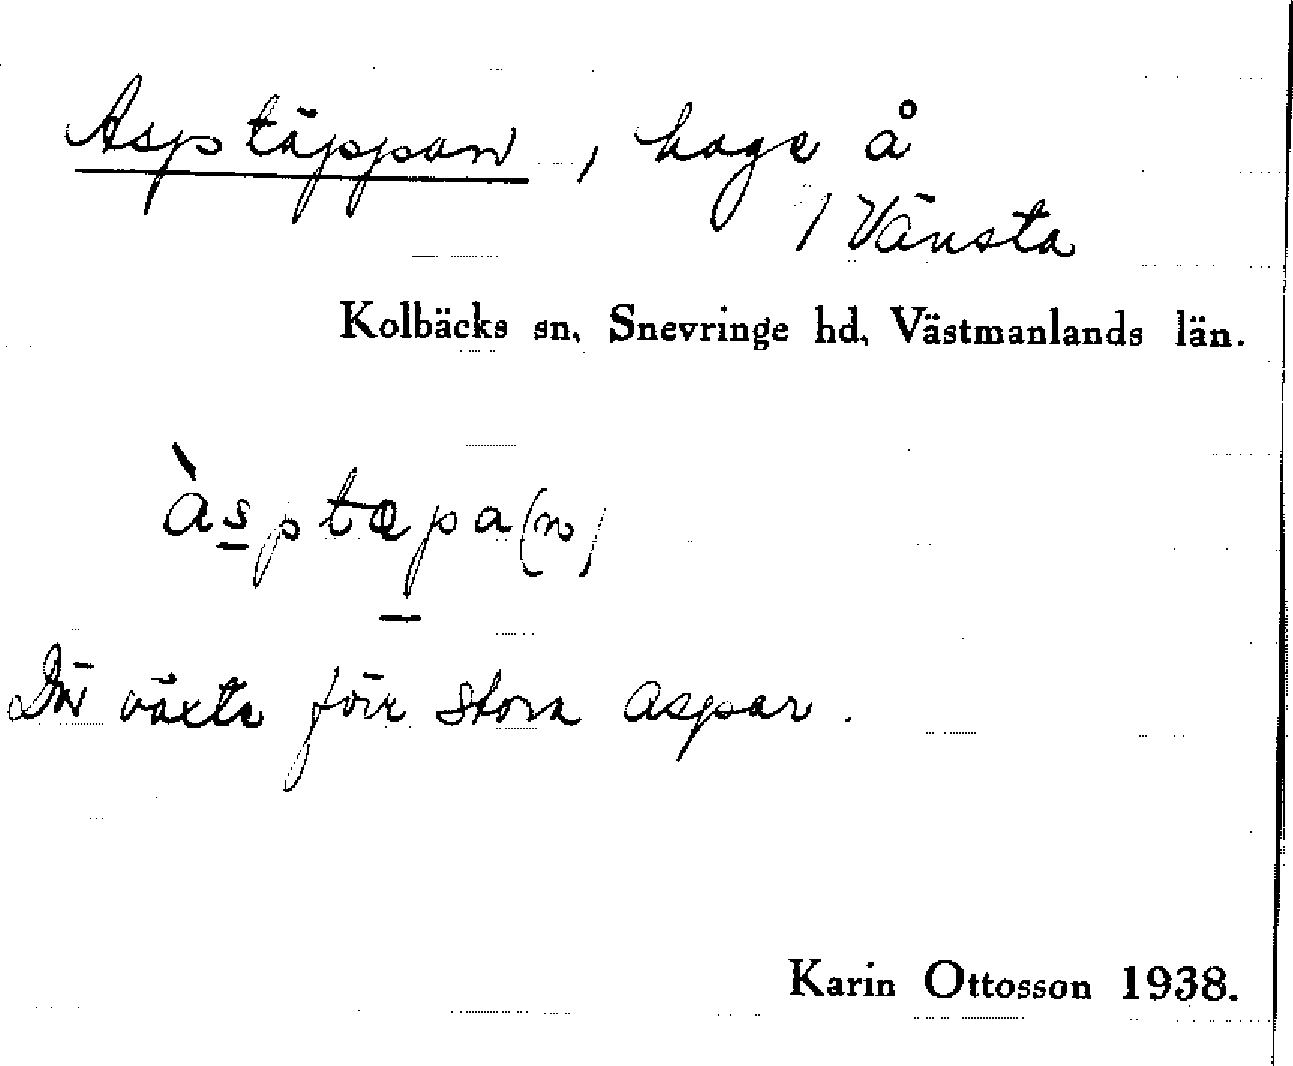 Asptäppan, hage å
/ Vänsta
Kolbäcks sn, Snevringe hd, Västmanlands län.
àsptæpa(n)
Där växte förr stora aspar.
Karin Ottosson 1938.